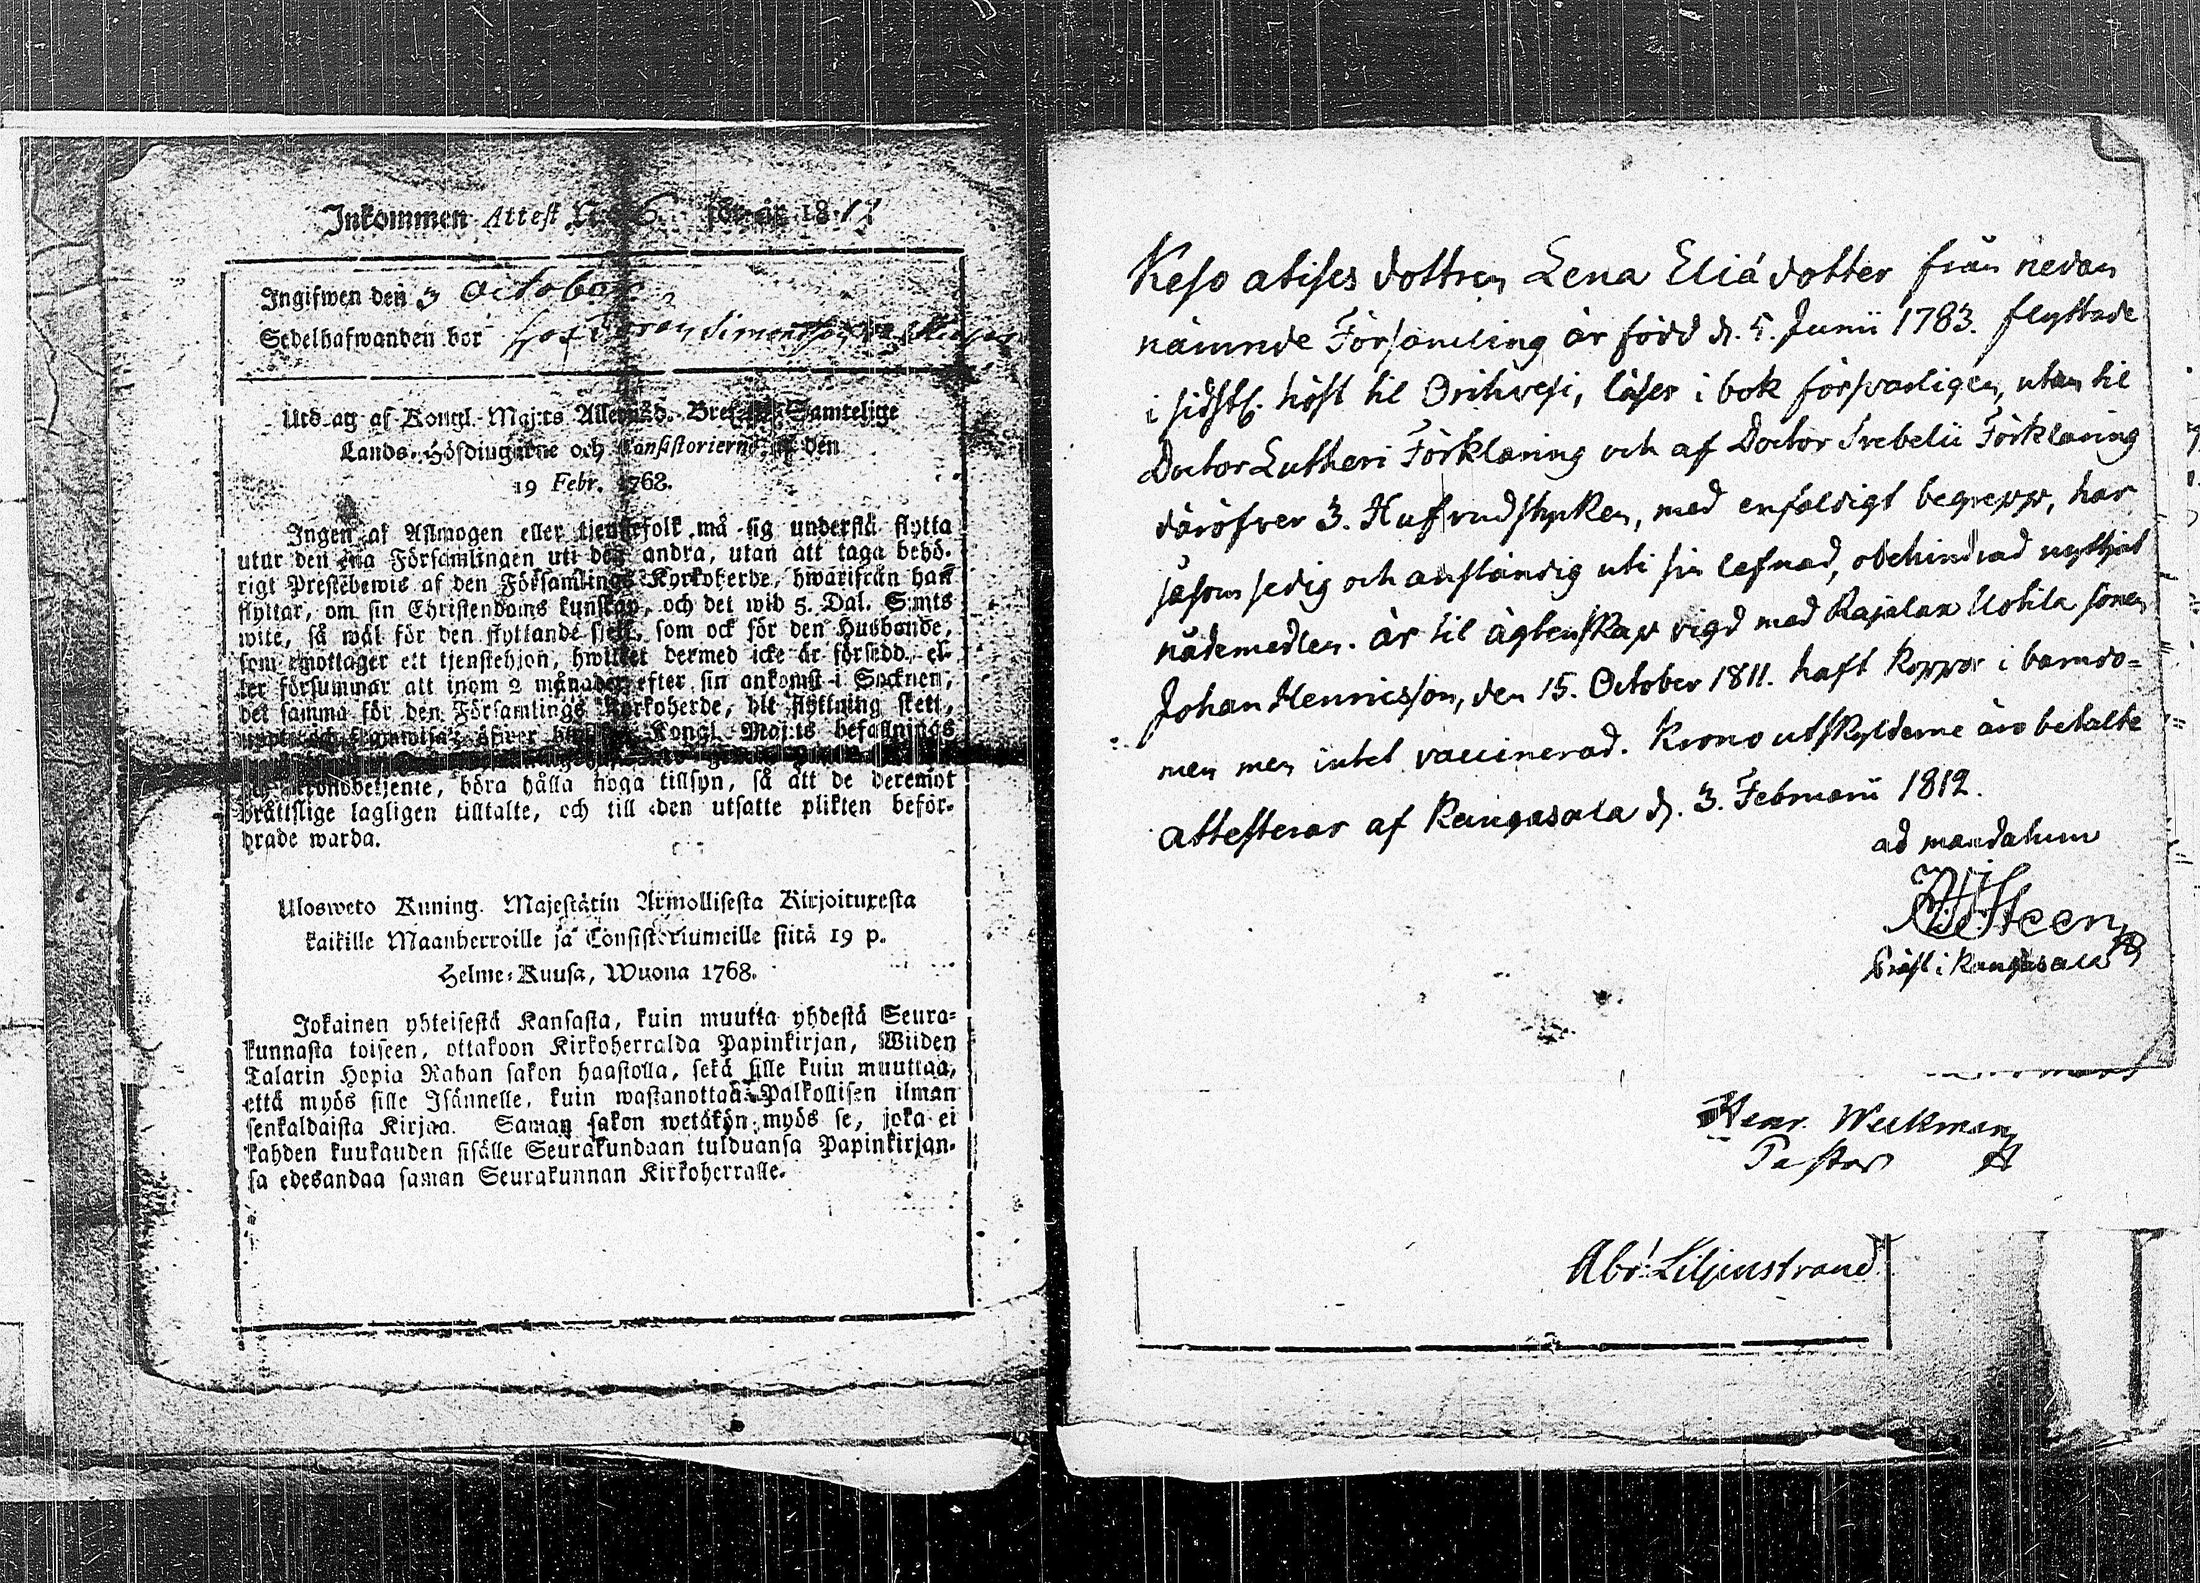 Inkommen Attest N:o 6 för år 1812
Ingifwen den 3 October
Sedelhafwanden bor hos
Utdrag af Kongl. Maj:ts Allernåd. Bref till Samtelige
Lands-Höfdingarne och Consistorierne af den
19 Febr. 1768.
Ingen af Allmogen eller tjenstefolk må sig understå flytta
utur den ena Församlingen uti den andra, utan att taga behö-
rigt Prestebewis af den Församlings Kyrkoherde, hwarifrån han
flyttar, om sin Christendoms kunskap, och det wid 5. Dal. S:mts
wite, så wäl för den flyttande sjelf, som ock för den Husbonde,
som emottager ett tjenstehjon, hwilket dermed icke är försedd, el-
ler försummar att inom 2 månader efter sin ankomst i Socknen,
det samma för den Församlings Kyrkoherde, dit flyttning skett,
Kongl. Maj:ts befallnings
och Kronobetjente, böra hålla noga tillsyn, så att de deremot
bråttslige lagligen tilltalte, och till den utsatte plikten beför-
drade warda.
Ulosweto Kuning. Majestätin Armollisesta Kirjoituxesta
kaikille Maanherroille ja Consistoriumeille siitä 19 p.
Helme-Kuusa, Wuona 1768.
Jokainen yhteisestä Kansasta, kuin muutta yhdestä Seura-
kunnasta toiseen, ottakoon Kirkoherralda Papinkirjan, Wiiden
Talarin Hopia Rahan sakon haastolla, sekä sille kuin muuttaa,
että myös sille Isännelle, kuin wastanottaa Palkollisen ilman
senkaldaista Kirjaa. Saman sakon wetäkön myös se, joka ei
kahden kuukauden sisälle Seurakundaan tulduansa Papinkirjan-
sa edesandaa saman Seurakunnan Kirkoherralle.
Keso atises dottren Lena Eliä dotter från nedan
nämnde Församling är född d. 5. Junii 1783. flyttade
i sidstl. höst til Orihvesi, läser i bok försvarligen, utan til
Doctor Lutheri Förklaring och af Doctor Svebelii Förklaring
däröfver 3. Hufvudstycken, med enfaldigt begrepp, har
såsom sedig och anständig uti sin lefnad, obehindrad nyttjat
nådemedlen. är til ägtenskap vigd med Rajalax Uotila sonen
Johan Henricsson, den 15. October 1811. haft koppor i barndo-
men men intet vaccinerad. Krono utskylderne äro betalte
attesterar af Kangasala d. 3. Februarii 1812.
ad mandatum
Steen
Präst i Kangasala
Henr. Weckman
Pastor
Abr! Liljenstrand